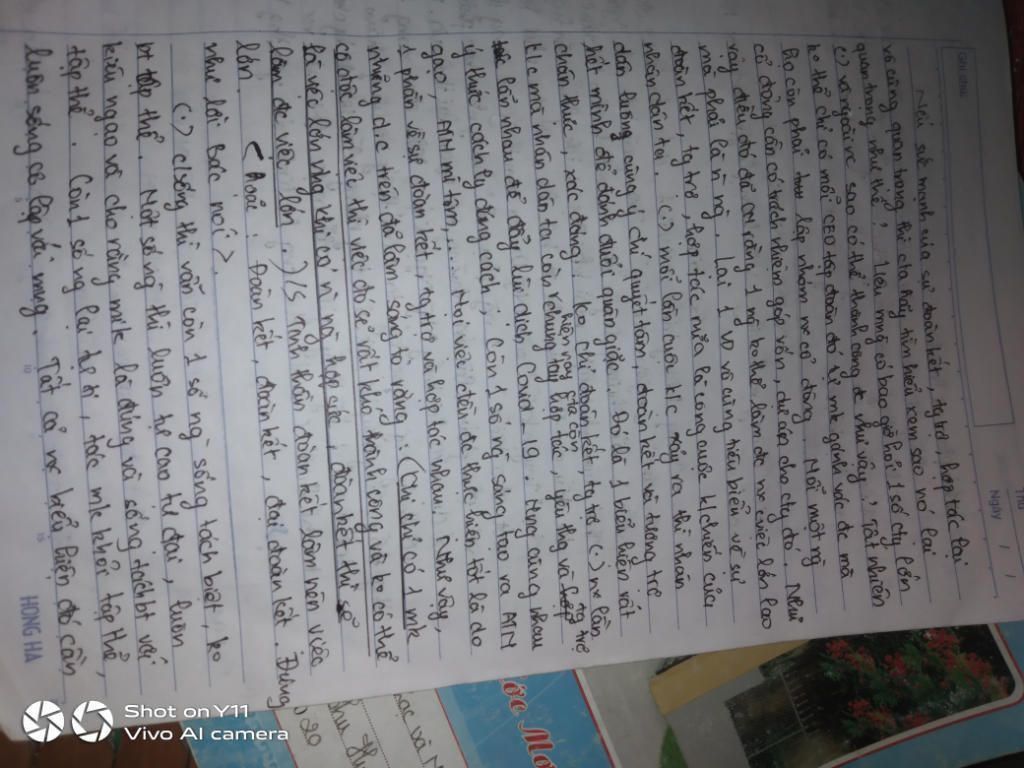 GHI ĐIỂM
Thứ
Ngày / /
Nói sức mạnh của sự đoàn kết, tg trợ, hợp tác lại
vô cùng quan trọng thì cta hãy tìm hiểu xem sao nó lại
quan trọng như thế, 1 lẽ mng có bao giờ hỏi 1 số cty lớn
(.) và ngoài nc sao có thể thành công đc như vậy, Tất nhiên
ko thể chỉ có mỗi CEO tập đoàn đó tự mk gánh vác đc mà
họ còn phải lập nhóm nc cổ đông. Mỗi một ng
cổ đông cần có trách nhiệm góp vốn, dự án cho cty đó. Như
vậy điều đó đã cm rằng 1 ng ko thể làm đc nc việc lớn lao
mà phải là n ng. Lại 1 vd vô cùng tiêu biểu về sự
đoàn kết, tg trợ, hợp tác nữa là công cuộc k/chiến của
nhân dân ta. (.) mỗi lần cuộc k/c nổ ra thì nhân
dân luông cùng ý chí quyết tâm, đoàn kết và tương trợ
hết mình để đánh đuổi quân giặc. Đó là 1 biểu hiện rất
chân thực, xác đáng. Ko chỉ đoàn kết, tg trợ (.) nc lần
k/c mà nhân dân ta còn hợp tác, yêu thg và tg trợ
hiện nay của còn
lẫn nhau để đẩy lùi dịch Covid-19. Nng cùng nhau
ý thức cách ly đúng cách; Còn 1 số ng sáng tạo ra ATM
gạo, ATM mì tôm,... Mọi việc đều đc thực hiện tốt là do
1 phần về sự đoàn kết, tg trợ và hợp tác nhau. Như vậy,
những d/c trên đã làm sáng tỏ rằng: (Chỉ chỉ có 1 mk
cá độc làm việc thì việc đó sẽ rất khó thành công và ko có thể
là việc lớn nhg khi có n ng hợp sức, đoàn kết thì sẽ
làm đc việc lớn.) /S Tinh thần đoàn kết làm nên việc
lớn. < Aoóc. Đoàn kết, đoàn kết, đại đoàn kết. Đúng
như lời Bác nói >.
(.) c/sống thì vẫn còn 1 số ng sống tách biệt, ko
tập thể. Một số ng thì luôn tự cao tự đại, luôn
kiêu ngạo và cho rằng mik là đúng và sống tách bt với
tập thể. Còn 1 số ng lại tự ti, tách mk khỏi tập thể,
luôn sống cô lập với mng. Tất cả nc biểu hiện đó cần
HONG HA
Shot on Y11
Vivo AI camera